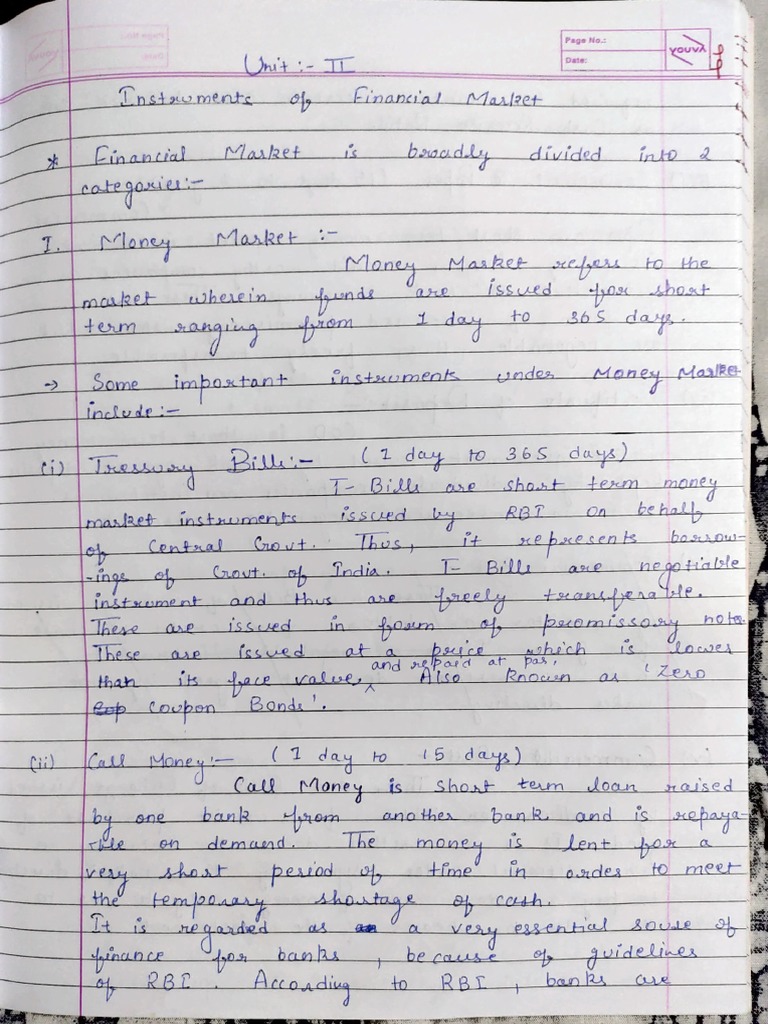 Page No.:
Date:
youva
Unit :- II
Instruments of Financial Market
* Financial Market is broadly divided into 2
categories:-
I. Money Market :-
Money Market refers to the
market wherein funds are issued for short
term ranging from 1 day to 365 days.
→ Some important instruments under Money Market
include:-
(i) Tressury Bills:- (1 day to 365 days)
T-Bills are short term money
market instruments issued by RBI on behalf
of Central Govt. Thus, it represents borrow-
-ings of Govt. of India. T-Bills are negotiable
instrument and thus are freely transferable.
These are issued in form of promissory note.
These are issued at a price which is lower
and repaid at par,
than its face value ^ Also known as 'Zero
coupon Bonds'.
(ii) Call Money:- (1 day to 15 days)
Call Money is short term loan raised
by one bank from another bank and is repaya-
-ble on demand. The money is lent for a
very short period of time in order to meet
the temporary shortage of cash.
It is regarded as a very essential souse of
finance for banks, because of guidelines
of RBI. According to RBI, banks are